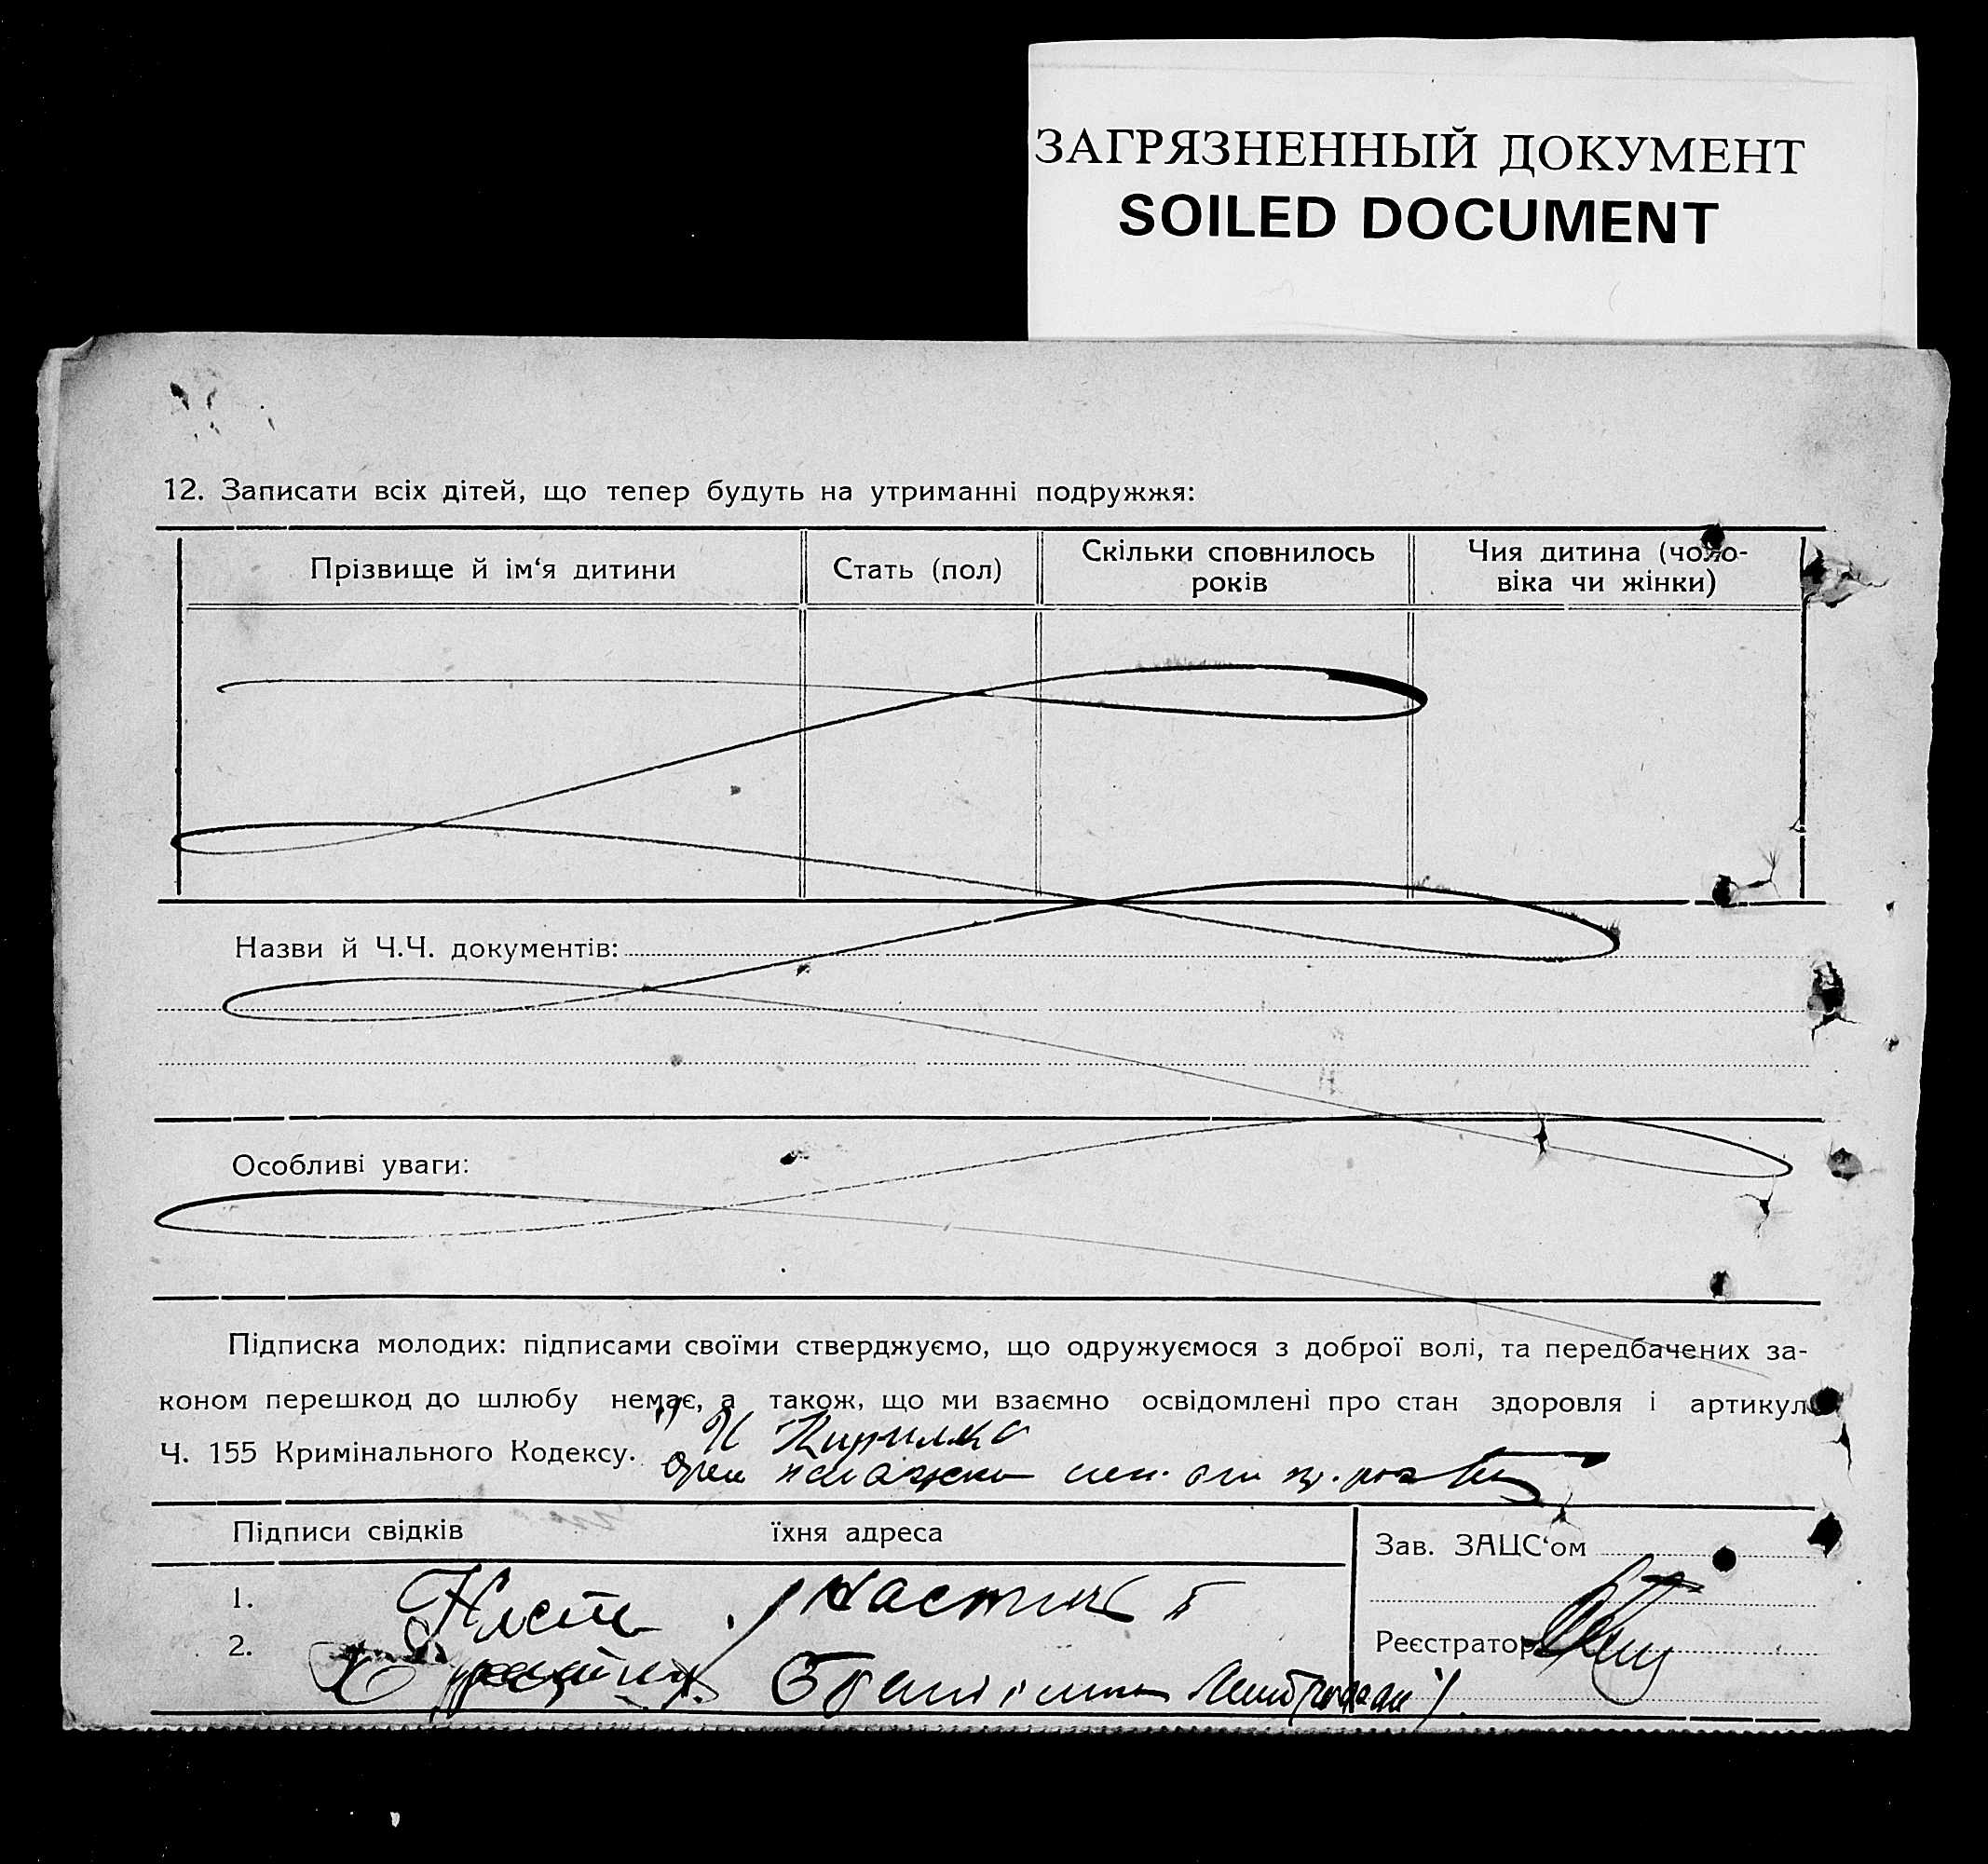 ЗАГРЯЗНЕННЫЙ ДОКУМЕНТ
SOILED DOCUMENT
12. Записати всіх дітей, що тепер будуть на утриманні подружжя:
Прізвище й ім‘я дитини
Стать (пол)
Скільки сповнилось
років
Чия дитина (чоло-
віка чи жінки)
Назви й Ч.Ч. документів:
Особливі уваги:
Підписка молодих: підписами своїми стверджуємо, що одружуємося з доброї волі, та передбачених за-
коном перешкод до шлюбу немає, а також, що ми взаємно освідомлені про стан здоровля і артикул
Ч. 155 Кримінального Кодексу.
Підписи свідків
їхня адреса
Зав. ЗАЦС‘ом
1.
2.
Реєстратор